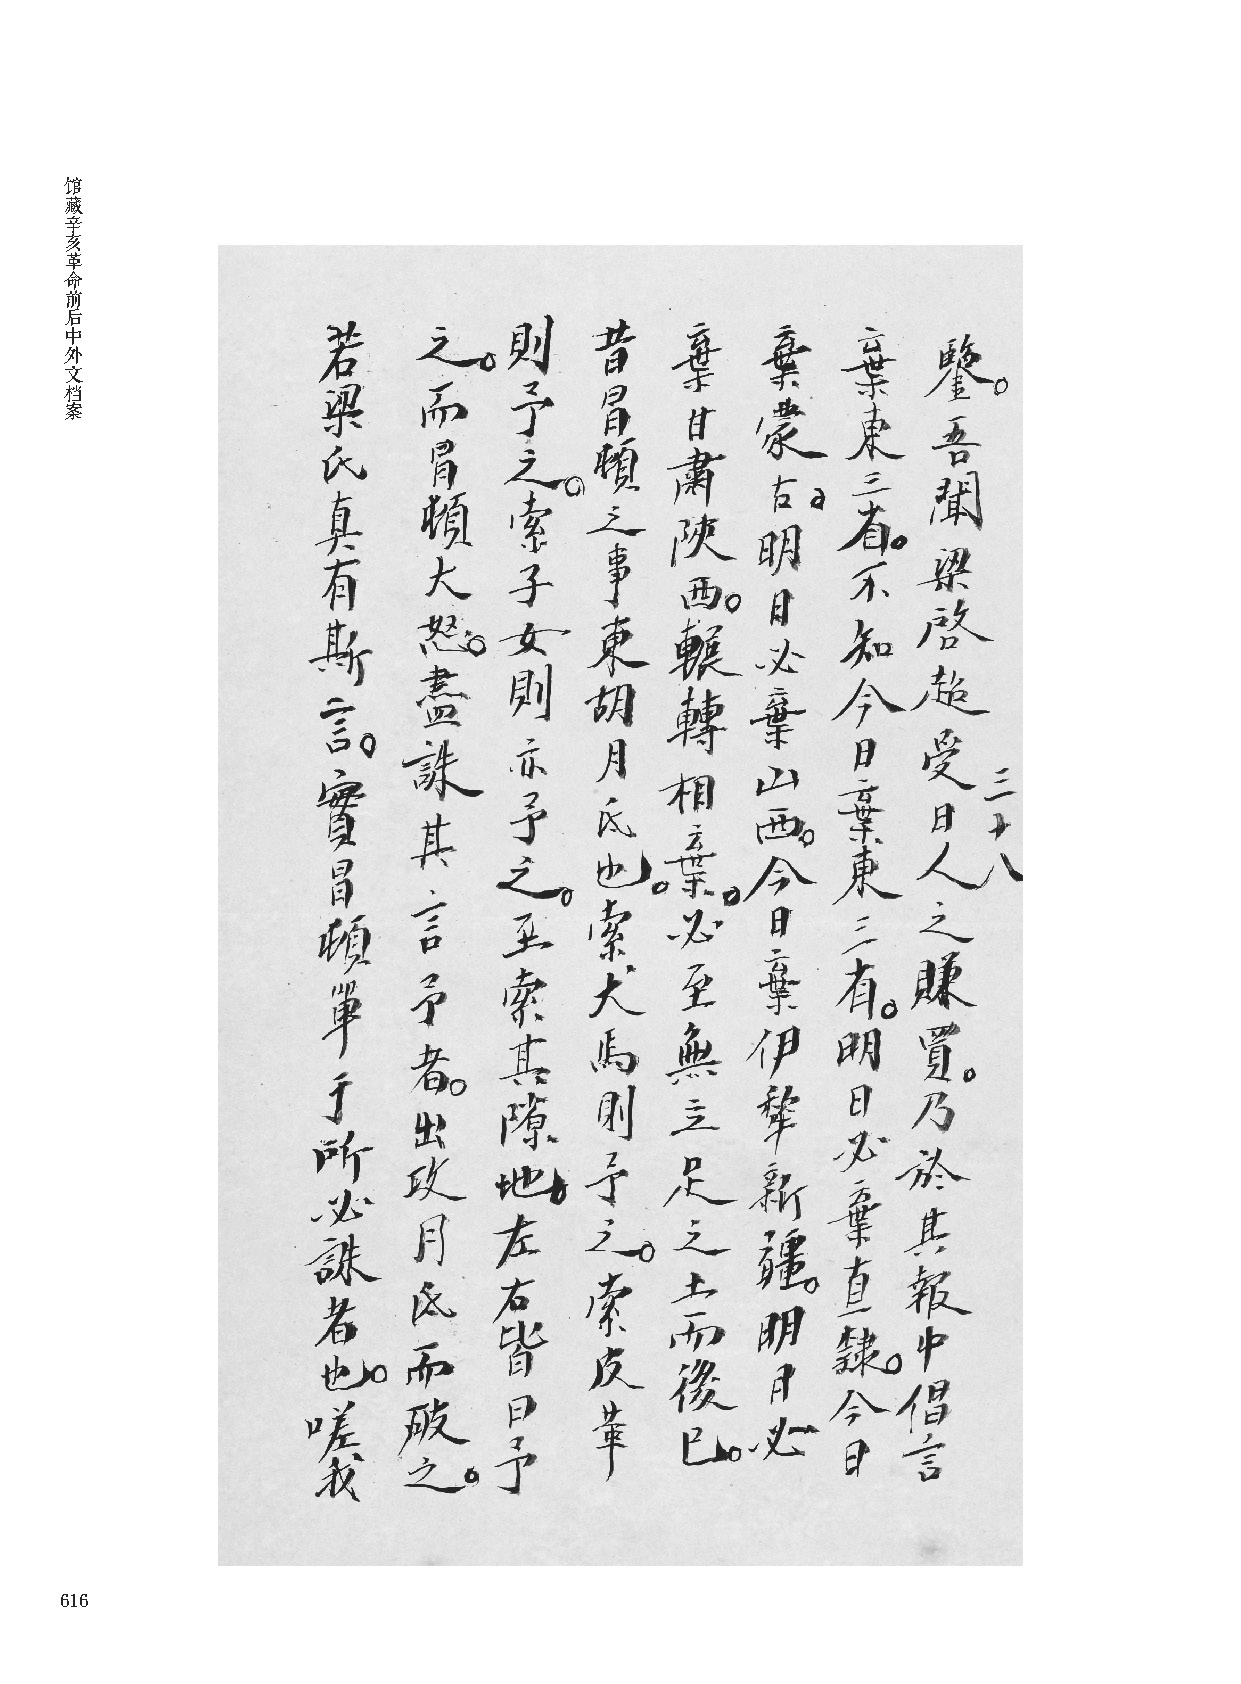 馆藏辛亥革命前后中外文档案
三十八
鑒。吾聞梁啓超受日人之賺買。乃於其報中倡言
棄東三省。不知今日棄東三省。明日必棄直隸。今日
棄蒙古。明日必棄山西。今日棄伊犂新疆。明日必
棄甘肅陝西。輾轉相棄。必至無立足之土而後已。
昔冒頓之事東胡月氏也。索犬馬則予之。索皮革
則予之。索子女則亦予之。至索其隙地。左右皆曰予
之。而冒頓大怒。盡誅其言予者。出攻月氏而破之。
若梁氏真有斯言。實冒頓單于所必誅者也。嗟我
616